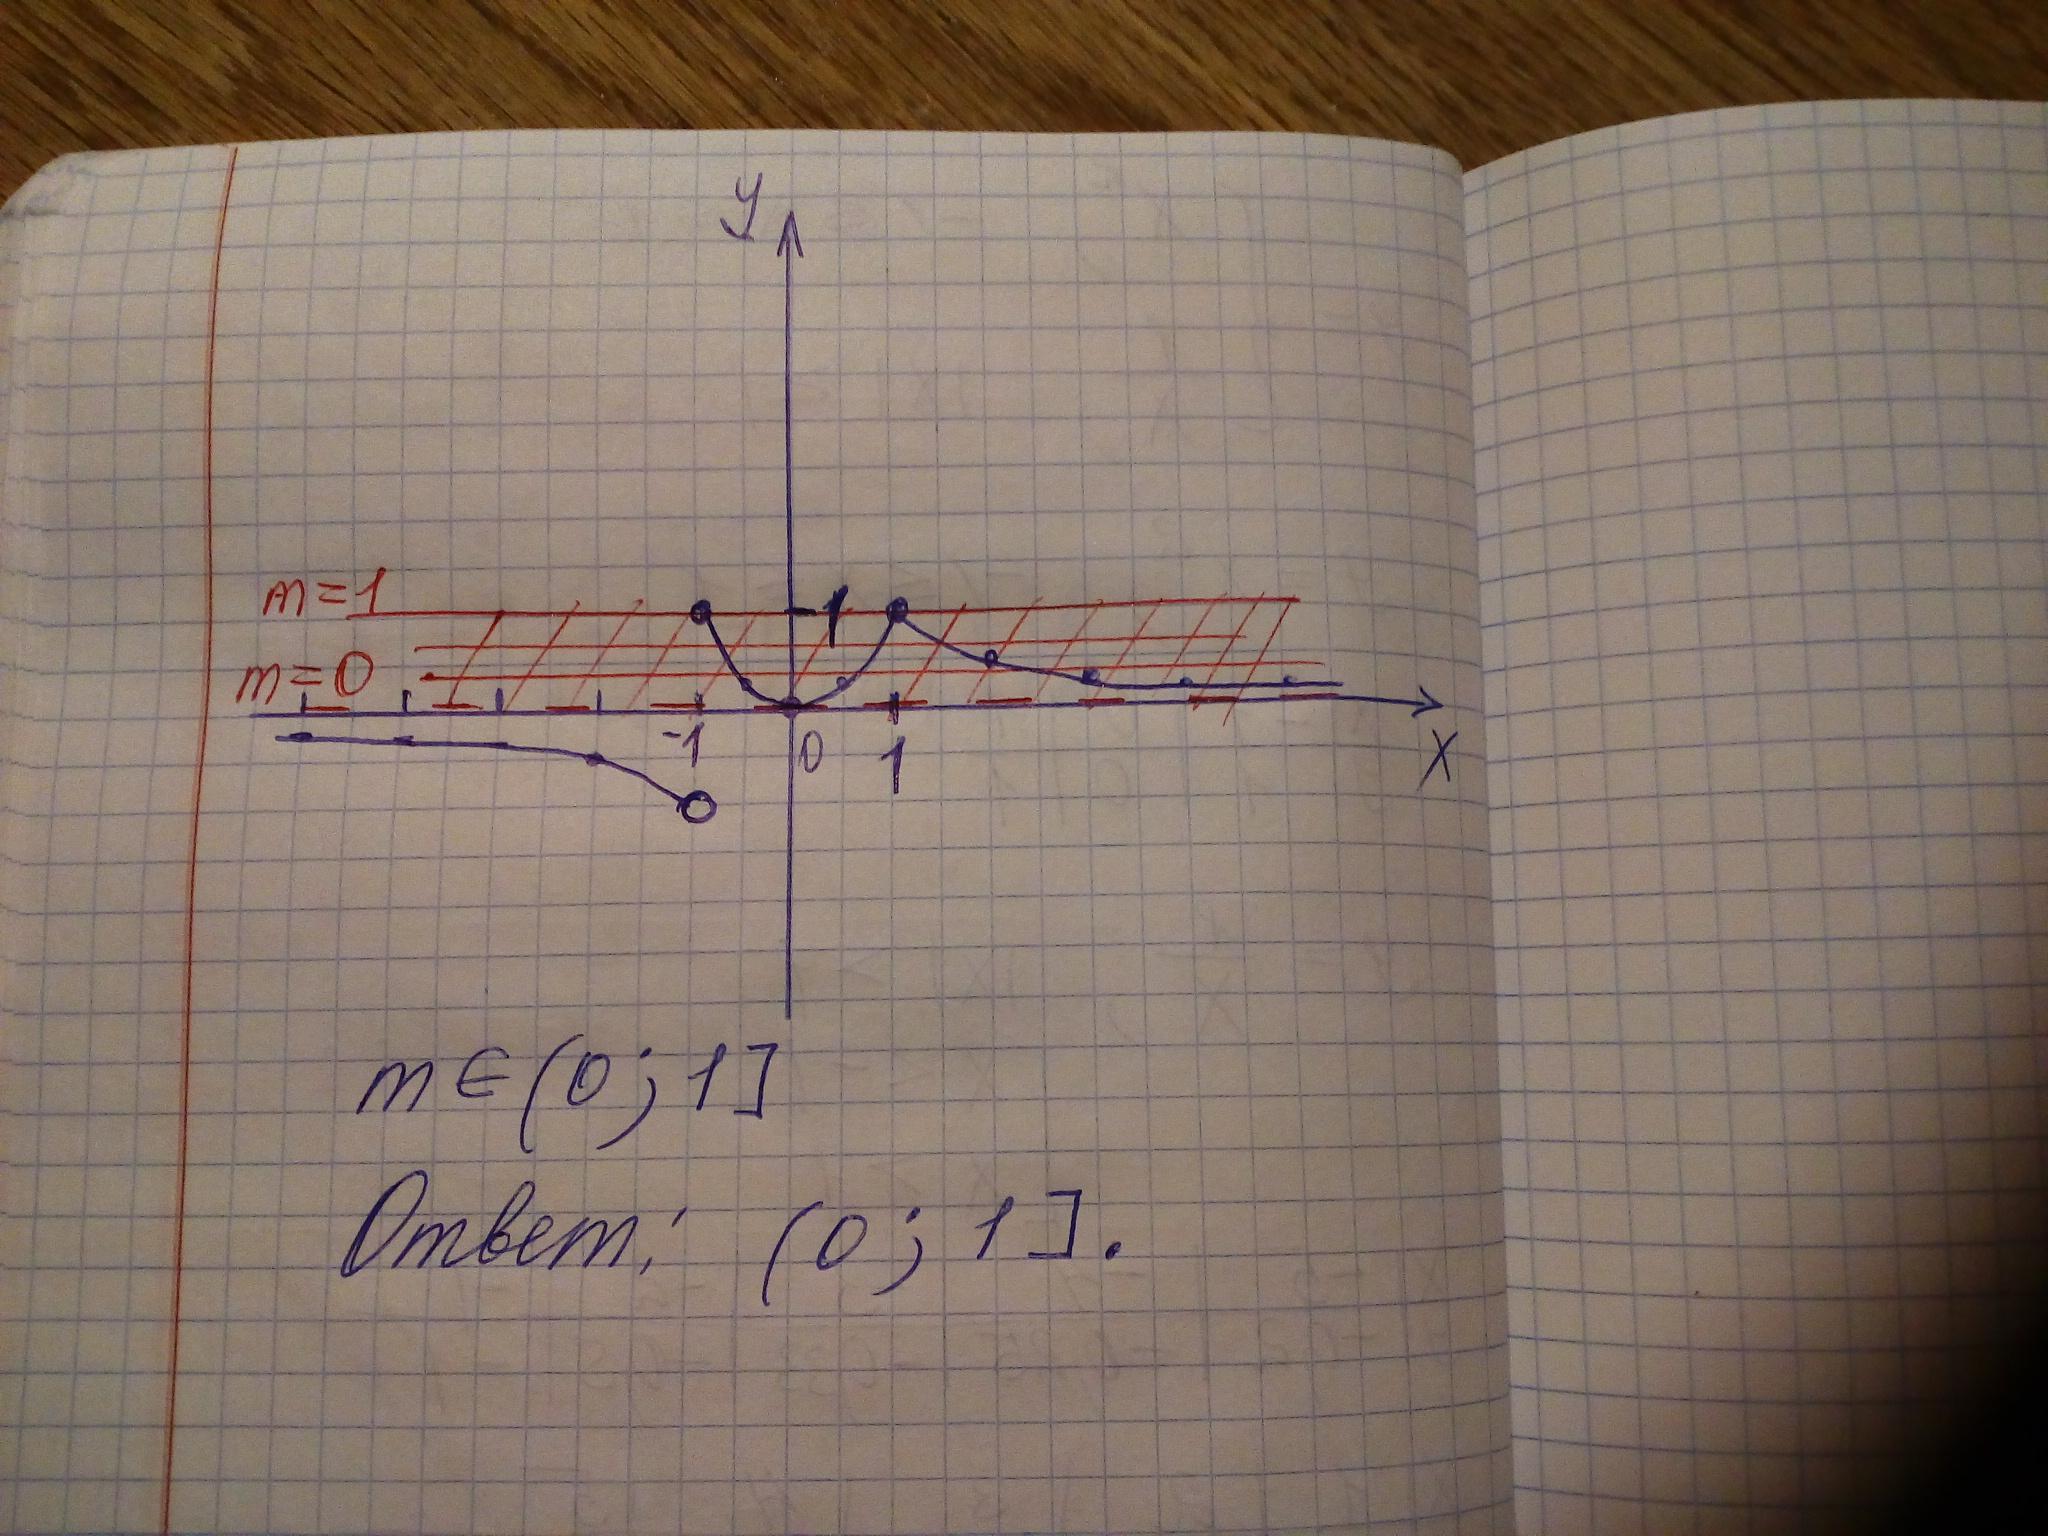 y
m=1
1
m=0
-1 0 1
x
m∈(0;1]
Ответ: (0;1].